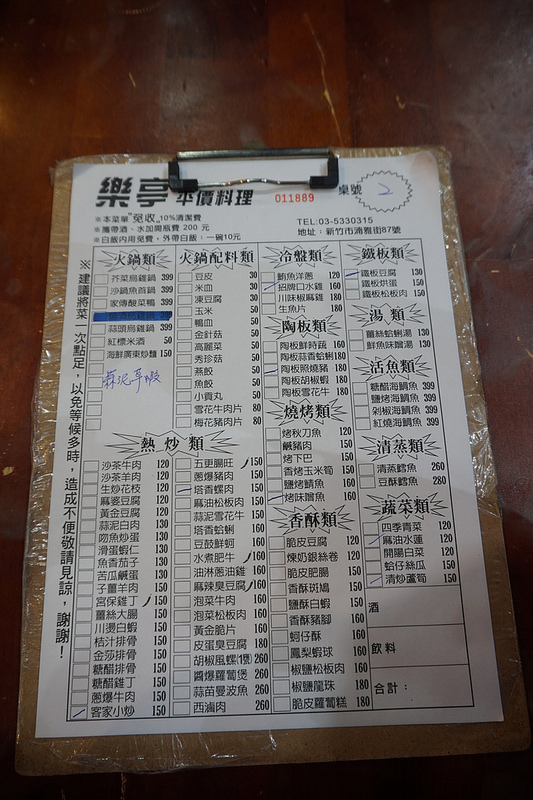 樂亭 平價料理
011889
桌號 2
※本菜單"免收"10%清潔費
※攜帶酒、水加開瓶費 200 元
※白飯內用免費、外帶白飯:一碗10元
TEL:03-5330315
地址:新竹市湳雅街87號
※建議將菜一次點足,以免等候多時,造成不便敬請見諒,謝謝!
火鍋類
芥菜烏雞鍋 399
沙鍋魚首鍋 399
家傳酸菜鴨 399
蒜頭烏雞鍋 399
紅標米酒 50
海鮮廣東炒麵 150
火鍋配料類
豆皮 30
米血 30
凍豆腐 30
玉米 50
鴨血 50
金針菇 50
高麗菜 50
秀珍菇 50
燕餃 50
魚餃 50
小貢丸 50
雪花牛肉片 80
梅花豬肉片 80
冷盤類
鮪魚洋蔥 120
招牌口水雞 160
川味椒麻雞 180
生魚片 180
陶板類
陶板鮮時蔬 160
陶板蒜香蛤蜊 180
陶板照燒豬 180
陶板胡椒蝦 180
陶板雪花牛 180
燒烤類
烤秋刀魚 120
鹹豬肉 150
烤下巴 150
香烤玉米筍 150
鹽烤鯖魚 160
烤味噌魚 160
香酥類
脆皮豆腐 120
煉奶銀絲卷 120
脆皮肥腸 150
香酥斑鳩 150
鹽酥白蝦 150
香酥豬腳 160
蚵仔酥 160
鳳梨蝦球 160
椒鹽松板肉 160
椒鹽龍珠 180
脆皮蘿蔔糕 180
鐵板類
鐵板豆腐 130
鐵板烘蛋 150
鐵板松板肉 150
湯類
薑絲蛤蜊湯 130
鮮魚味噌湯 130
活魚類
糖醋海鯛魚 399
鹽烤海鯛魚 399
剁椒海鯛魚 399
紅燒海鯛魚 399
清蒸類
清蒸鱈魚 260
豆酥鱈魚 280
蔬菜類
四季青菜 120
麻油水蓮 120
開陽白菜 120
蛤仔絲瓜 150
清炒蘆筍 150
酒
飲料
合計:
熱炒類
沙茶牛肉 120
沙茶羊肉 120
生炒花枝 120
麻婆豆腐 120
黃金豆腐 120
蒜泥白肉 130
吻魚炒蛋 130
滑蛋蝦仁 130
魚香茄子 130
苦瓜鹹蛋 130
子薑羊肉 150
宮保雞丁 150
薑絲大腸 150
川燙白蝦 150
桔汁排骨 150
金莎排骨 150
糖醋排骨 150
糖醋雞丁 150
蔥爆牛肉 150
客家小炒 150
五更腸旺 150
蔥爆豬肉 150
塔香螺肉 150
麻油松板肉 150
蒜泥雪花牛 150
塔香蛤蜊 160
豆鼓鮮蚵 160
水煮肥牛 160
油淋蔥油雞 160
麻辣臭豆腐 160
泡菜牛肉 160
泡菜松板肉 160
黃金脆片 160
皮蛋臭豆腐 180
胡椒風螺(1隻) 260
醬爆蘿蔔煲 260
蒜苗曼波魚 260
西滷肉 260